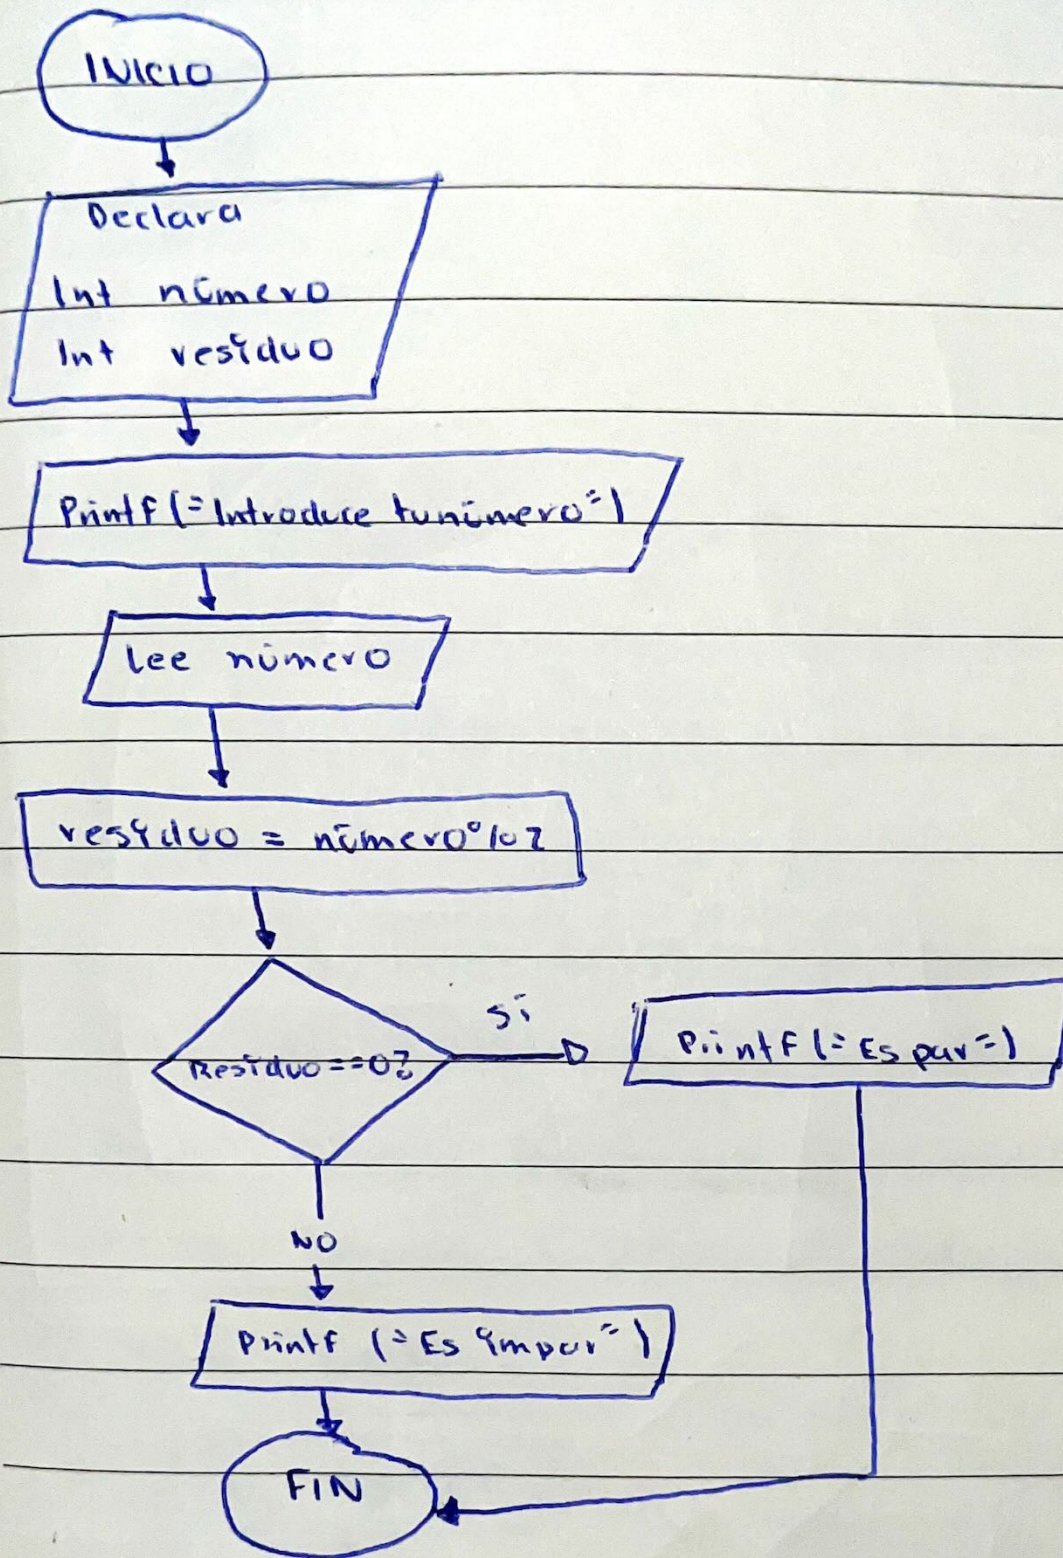 INICIO
Declara
Int número
Int residuo
Printf (="Introduce tu número"=)
Lee número
residuo = número%2
Residuo==0?
Sí
Printf (="Es par"=)
NO
Printf (="Es impar"=)
FIN